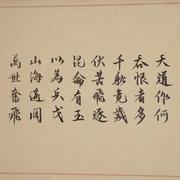 天道作何
吞恨者多
千秋竟歲
伏苦飛逐
崑崙有玉
以為兵戈
山海遙闊
萬世奮飛